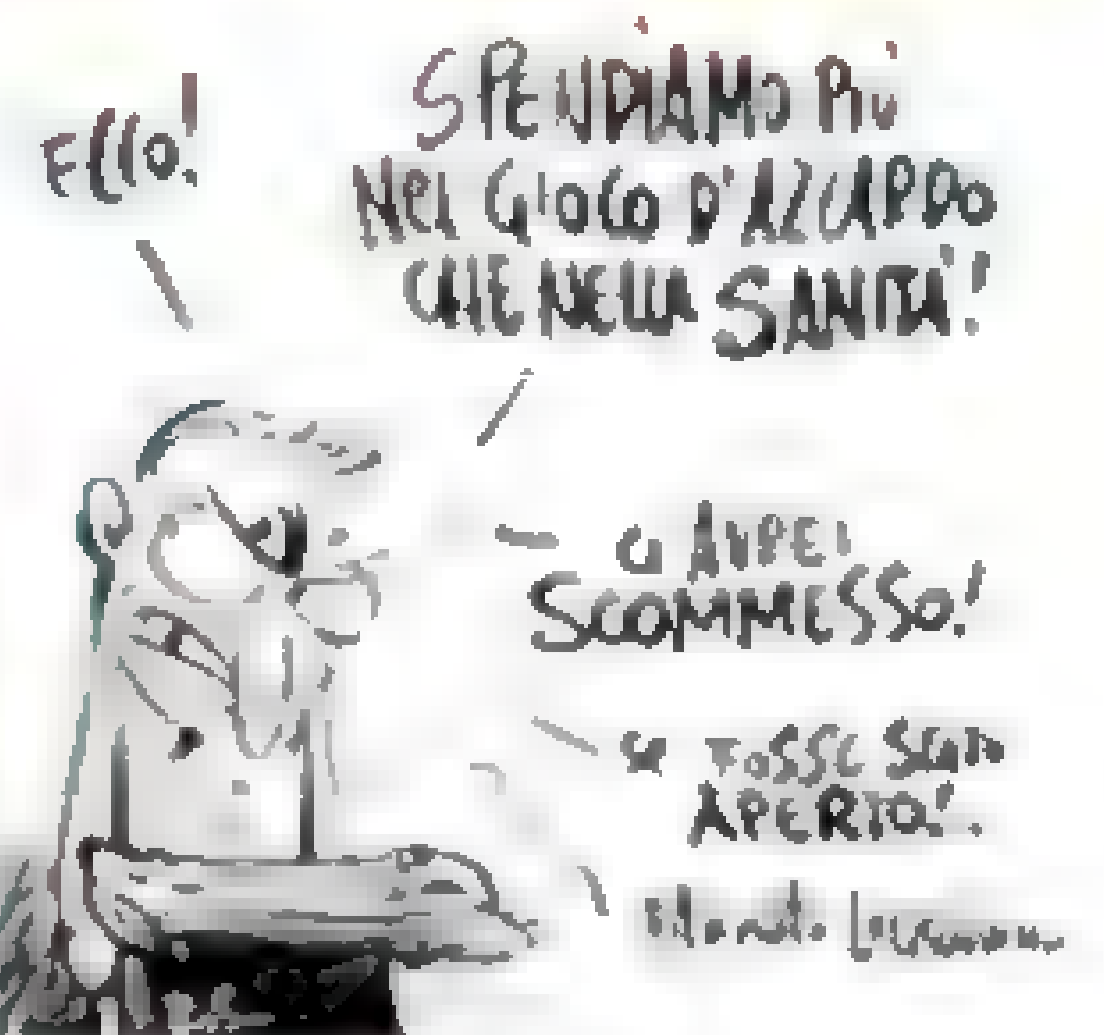 ECCO!
SPENDIAMO PIÙ
NEL GIOCO D'AZZARDO
CHE NELLA SANITÀ!
CI AVREI
SCOMMESSO!
SE FOSSE STATO
APERTO!